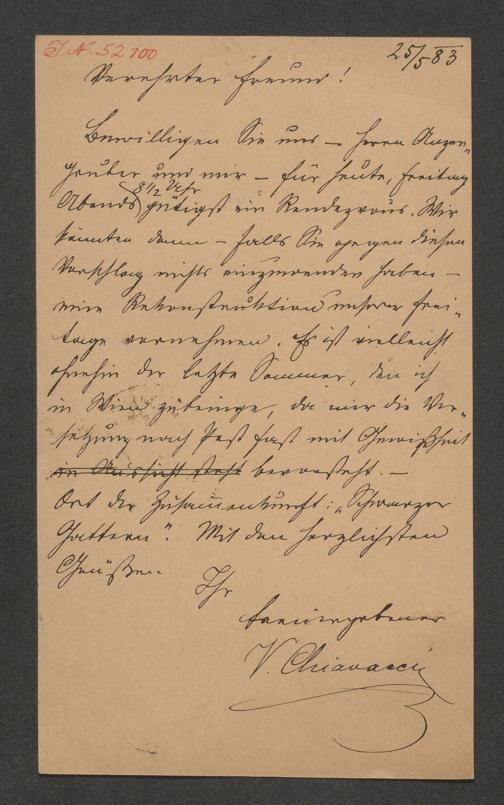 J. N. 52 100
25/5 83
Verehrter Freund!
Bewilligen Sie uns – Herrn Anzen-
gruber und mir – für heute, Freitag
8 1/2 Uhr
Abends gütigst ein Rendezvous. Wir
könnten dann – falls Sie gegen diesen
Vorschlag nichts einzuwenden haben –
eine Rekonstruktion unserer Frei-
tage vornehmen. Es ist vielleicht
ohnehin der letzte Sommer, den ich
in Wien zubringe, da mir die Ver-
setzung nach Pest fast mit Gewißheit
in Aussicht steht bevorsteht. –
Ort der Zusammenkunft: „Schwarzer
Gattern". Mit den herzlichsten
Grüßen
Ihr
treuergebener
V. Chiavacci